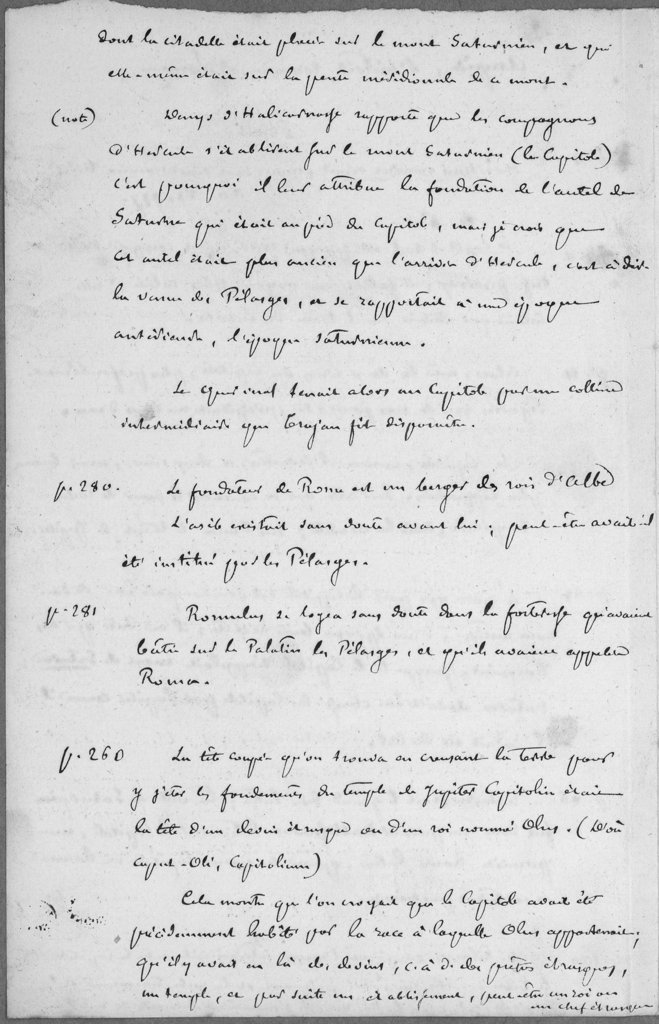 dont la citadelle était placée sur le mont Saturnien, et qui
elle-même était sur la pente méridionale de ce mont.
(note) Denys d'Halicarnasse rapporte que les compagnons
d'Hercule s'établirent sur le mont Saturnien (le Capitole)
c'est pourquoi il leur attribue la fondation de l'autel de
Saturne qui était au pied du Capitole, mais je crois que
cet autel était plus ancien que l'arrivée d'Hercule, c'est à dire
la venue des Pélasges, et se rapportait à une époque
antérieure, l'époque saturnienne.
Le Quirinal tenait alors au Capitole par une colline
intermédiaire que Trajan fit disparaître.
p. 280. Le fondateur de Rome est un berger des rois d'Albe
L'asile existait sans doute avant lui; peut-être avait-il
été institué par les Pélasges.
p. 281 Romulus se logea sans doute dans la forteresse qu'avaient
bâtie sur le Palatin les Pélasges, et qu'ils avaient appelée
Roma.
p. 260 La tête coupée qu'on trouva en creusant la terre pour
y jeter les fondements du temple de Jupiter Capitolin était
la tête d'un devin étrusque ou d'un roi nommé Olus. (D'où
caput-Oli, Capitolium)
Cela montre que l'on croyait que le Capitole avait été
précédemment habité par la race à laquelle Olus appartenait;
qu'il y avait eu là des devins, c. à d. des prêtres étrusques,
un temple, et par suite un établissement, peut-être un roi ou
un chef étrusque